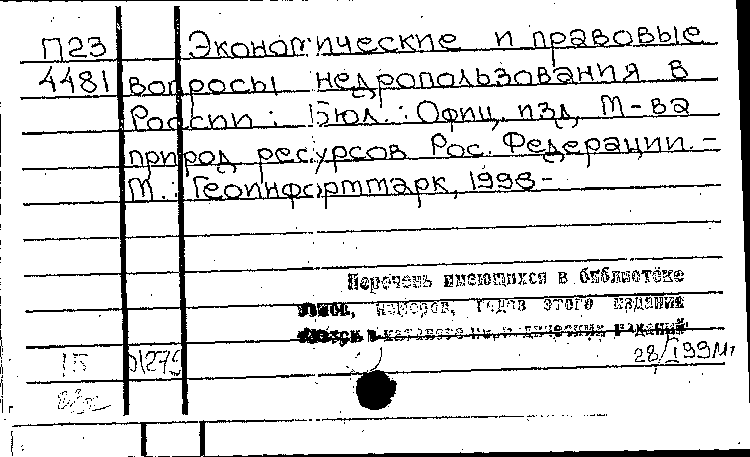 П23 Экономические и правовые
4481 вопросы недропользования в
России: Бюл.: Офиц. изд. М-ва
природ. ресурсов Рос. Федерации. -
М.: Геоинформмарк, 1998-
Перечень имеющихся в библиотеке
томов, номеров, годов этого издания
в каталоге периодических изданий
1П 01279 28/I 99